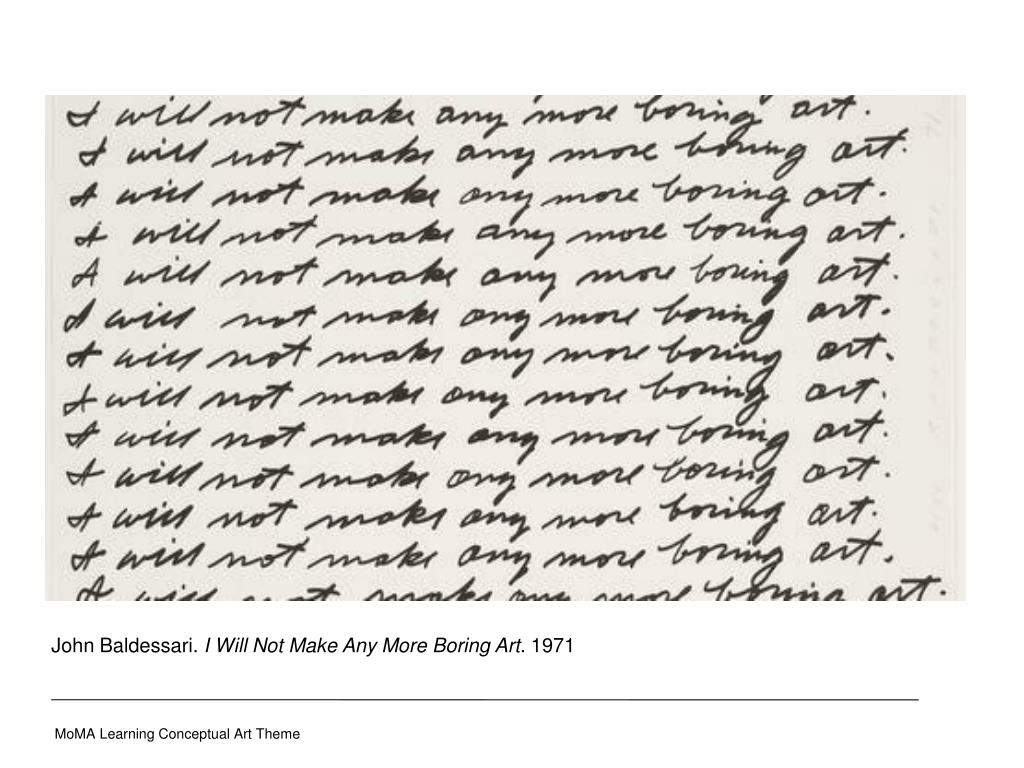 I will not make any more boring art.
I will not make any more boring art.
I will not make any more boring art.
I will not make any more boring art.
I will not make any more boring art.
I will not make any more boring art.
I will not make any more boring art.
I will not make any more boring art.
I will not make any more boring art.
I will not make any more boring art.
I will not make any more boring art.
I will not make any more boring art.
I will not make any more boring art.
John Baldessari. I Will Not Make Any More Boring Art. 1971
MoMA Learning Conceptual Art Theme